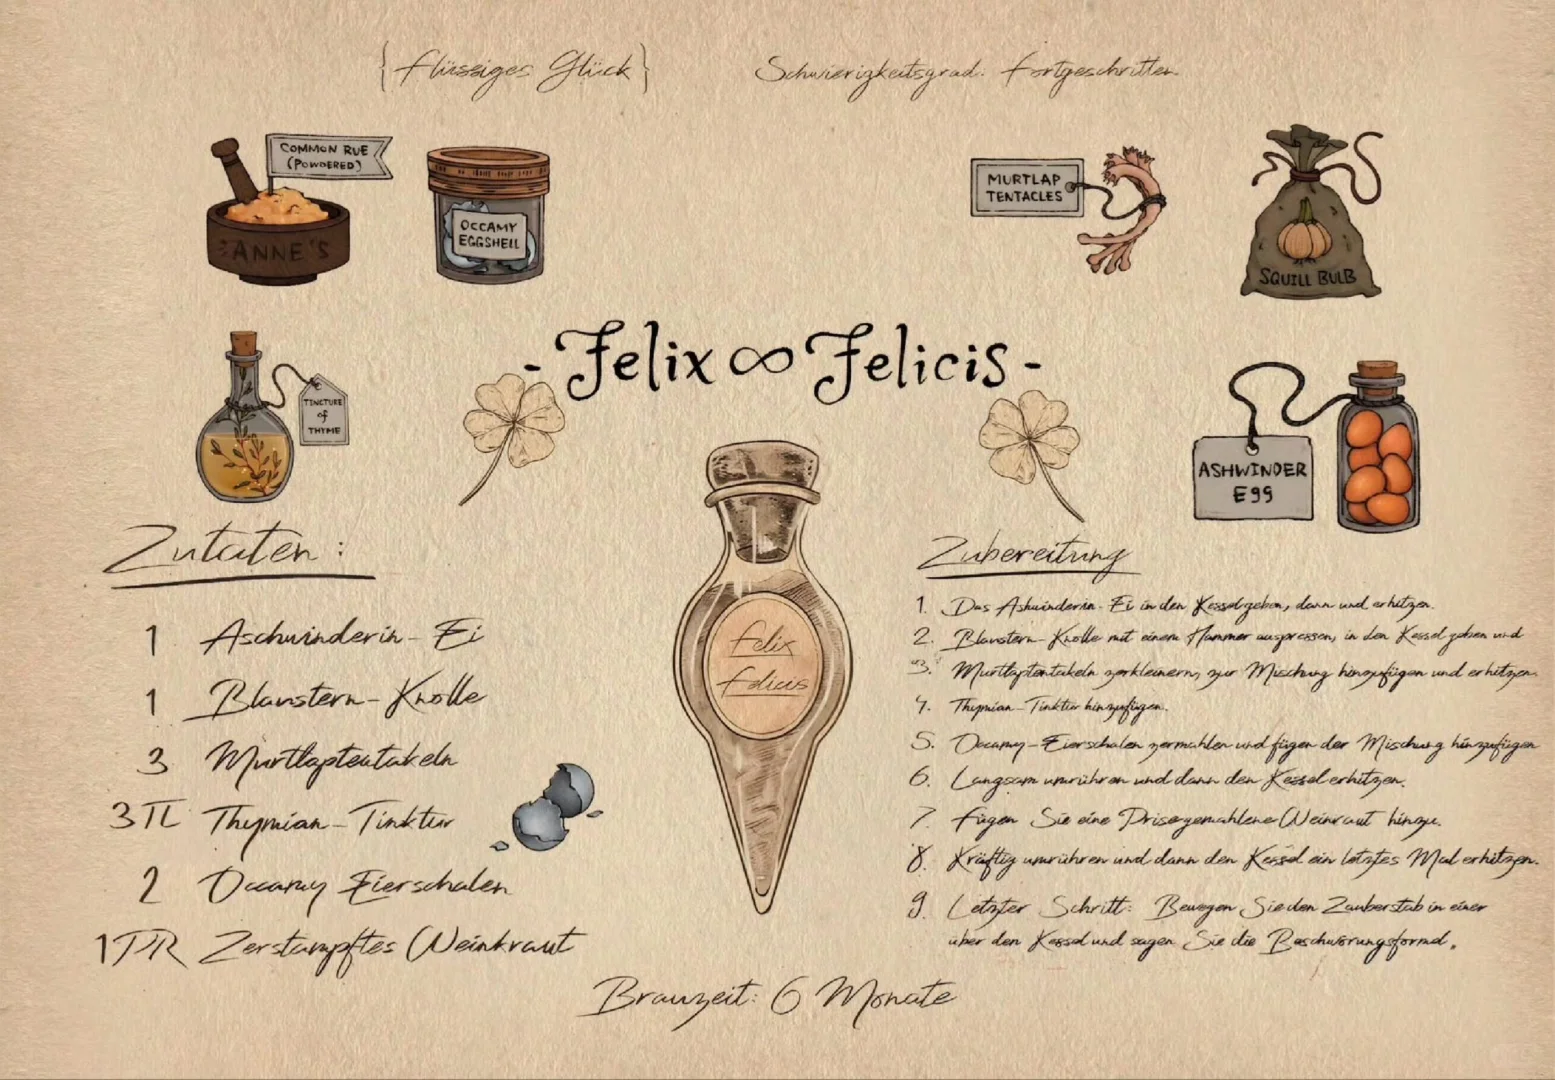 {flüssiges Glück}
Schwierigkeitsgrad: fortgeschritten
COMMON RUE
(POWDERED)
ANNE'S
OCCAMY
EGGSHELL
MURTLAP
TENTACLES
SQUILL BULB
- Felix ∞ Felicis -
TINCTURE
of
THYME
ASHWINDER
Egg
Zutaten:
1 Aschwinderin-Ei
1 Blaustern-Knolle
3 Murtlaptentakeln
3TL Thymian-Tinktur
2 Occamy Eierschalen
1PR Zerstampftes Weinkraut
Felix
felicis
Zubereitung
1. Das Ashwinderin-Ei in den Kessel geben, dann und erhitzen.
2. Blaustern-Knolle mit einem Hammer auspressen, in den Kessel geben und
3. Murtlaptentakeln zerkleinern, zur Mischung hinzufügen und erhitzen.
4. Thymian-Tinktur hinzufügen.
5. Occamy-Eierschalen zermahlen und fügen der Mischung hinzufügen
6. Langsam umrühren und dann den Kessel erhitzen.
7. Fügen Sie eine Prise gemahlene Weinraut hinzu.
8. Kräftig umrühren und dann den Kessel ein letztes Mal erhitzen.
9. Letzter Schritt: Bewegen Sie den Zauberstab in einer
über den Kessel und sagen Sie die Beschwörungsformel.
Brauzeit: 6 Monate